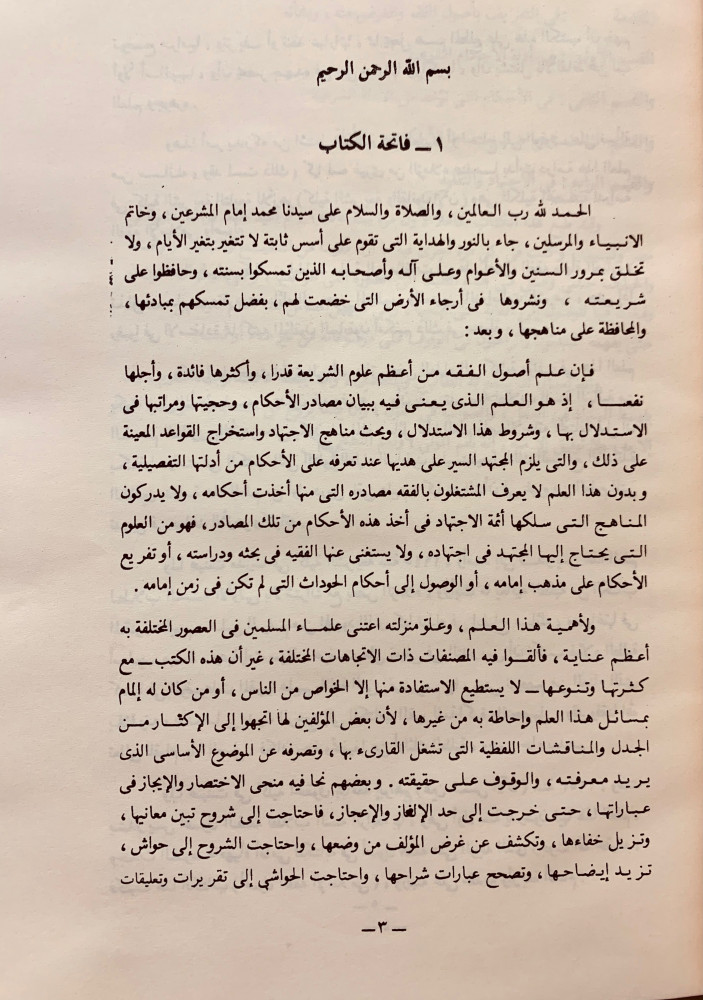 بسم الله الرحمن الرحيم
١ ــ فاتحة الكتاب
الحمد لله رب العالمين ، والصلاة والسلام على سيدنا محمد إمام المشرعين ، وخاتم
الانبياء والمرسلين ، جاء بالنور والهداية التى تقوم على أسس ثابتة لا تتغير بتغير الأيام ، ولا
تخلق بمرور السنين والأعوام وعلى آله وأصحابه الذين تمسكوا بسنته ، وحافظوا على
شريعته ، ونشروها فى أرجاء الأرض التى خضعت لهم ، بفضل تمسكهم بمبادئها ،
والمحافظة على مناهجها ، وبعد :
فإن علم أصول الفقه من أعظم علوم الشريعة قدرا ، وأكثرها فائدة ، وأجلها
نفعا ، إذ هو العلم الذى يعنى فيه ببيان مصادر الأحكام ، وحجيتها ومراتبها فى
الاستدلال بها ، وشروط هذا الاستدلال ، وبحث مناهج الاجتهاد واستخراج القواعد المعينة
على ذلك ، والتى يلزم المجتهد السير على هديها عند تعرفه على الأحكام من أدلتها التفصيلية ،
وبدون هذا العلم لا يعرف المشتغلون بالفقه مصادره التى منها أخذت أحكامه ، ولا يدركون
المناهج التى سلكها أئمة الاجتهاد فى أخذ هذه الأحكام من تلك المصادر ، فهو من العلوم
التى يحتاج إليها المجتهد فى اجتهاده ، ولا يستغنى عنها الفقيه فى بحثه ودراسته ، أو تفريع
الأحكام على مذهب إمامه ، أو الوصول إلى أحكام الحوداث التى لم تكن فى زمن إمامه .
ولأهمية هذا العلم ، وعلو منزلته اعتنى علماء المسلمين فى العصور المختلفة به
أعظم عناية ، فألقوا فيه المصنفات ذات الاتجاهات المختلفة ، غير أن هذه الكتب ــ مع
كثرتها وتنوعها ــ لا يستطيع الاستفادة منها إلا الخواص من الناس ، أو من كان له إلمام
بمسائل هذا العلم وإحاطة به من غيرها ، لأن بعض المؤلفين لها اتجهوا إلى الإكثار من
الجدل والمناقشات اللفظية التى تشغل القارىء بها ، وتصرفه عن الموضوع الأساسى الذى
يريد معرفته ، والوقوف على حقيقته . وبعضهم نحا فيه منحى الاختصار والإيجاز فى
عباراتها ، حتى خرجت إلى حد الإلغاز والإعجاز ، فاحتاجت إلى شروح تبين معانيها ،
وتزيل خفاءها ، وتكشف عن غرض المؤلف من وضعها ، واحتاجت الشروح إلى حواش ،
تزيد إيضاحها ، وتصحح عبارات شراحها ، واحتاجت الحواشى إلى تقريرات وتعليقات
ــ ٣ ــ